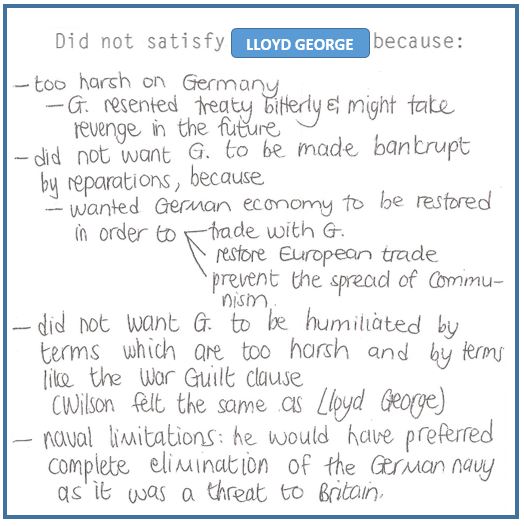 Did not satisfy LLOYD GEORGE because:
– too harsh on Germany
– G. resented treaty bitterly & might take
revenge in the future
– did not want G. to be made bankrupt
by reparations, because
– wanted German economy to be restored
in order to trade with G.
restore European trade
prevent the spread of Commu-
nism.
– did not want G. to be humiliated by
terms which are too harsh and by terms
like the War Guilt clause
(Wilson felt the same as Lloyd George)
– naval limitations: he would have preferred
complete elimination of the German navy
as it was a threat to Britain.